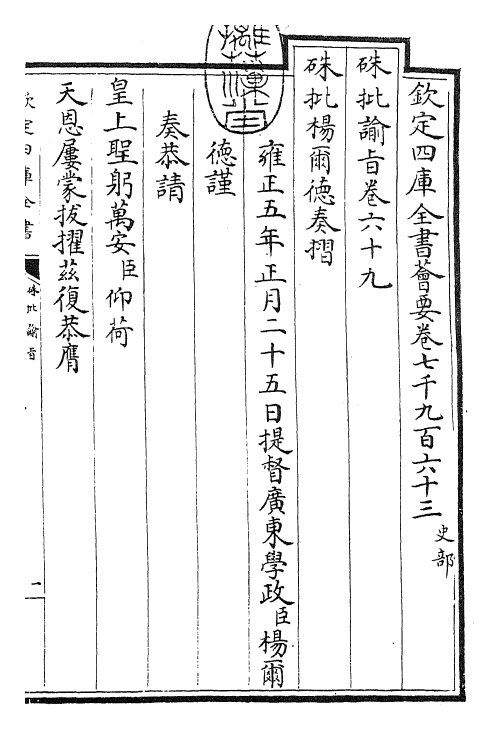 欽定四庫全書薈要卷七千九百六十三 史部
硃批諭旨卷六十九
硃批楊爾德奏摺
雍正五年正月二十五日提督廣東學政臣楊爾
德謹
奏恭請
皇上聖躬萬安臣仰荷
天恩屢蒙拔擢茲復恭膺
欽定四庫全書
硃批諭旨